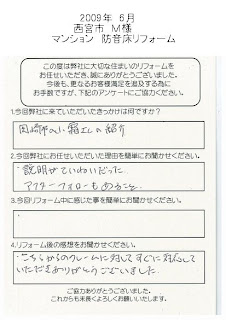 2009年 6月
西宮市 M様
マンション 防音床リフォーム
この度は弊社に大切な住まいのリフォームを
お任せいただき、誠にありがとうございました。
今後も、更なるお客様満足を追及する為に
お手数ですが、下記のアンケートにご協力ください。
1.今回弊社に来ていただいたきっかけは何ですか?
の紹介
2.今回弊社にお任せいただいた理由を簡単にお聞かせください。
・説明がていねいだった
アフターフォローもあること
3.今回リフォーム中に感じた事を簡単にお聞かせください。
4.リフォーム後の感想をお聞かせください。
・こちらからのクレームに対してすぐに対応して
いただきありがとうございました
ご協力ありがとうございました。
これからも末長くよろしくお願いいたします。